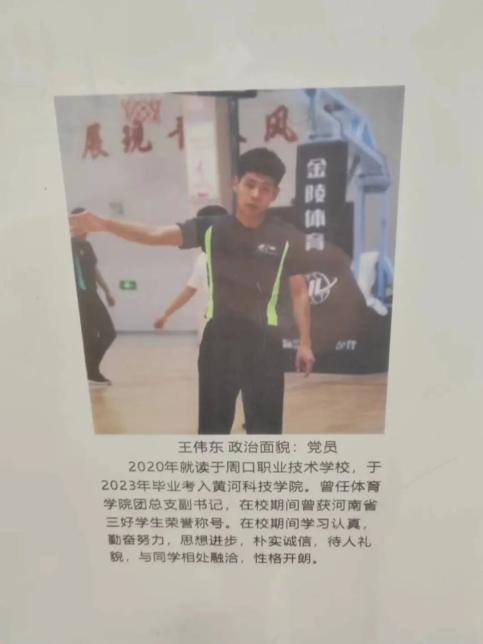 展现
风
金陵体育
王伟东 政治面貌：党员
2020年就读于周口职业技术学校，于
2023年毕业考入黄河科技学院。曾任体育
学院团总支副书记，在校期间曾获河南省
三好学生荣誉称号。在校期间学习认真，
勤奋努力，思想进步，朴实诚信，待人礼
貌，与同学相处融洽，性格开朗。